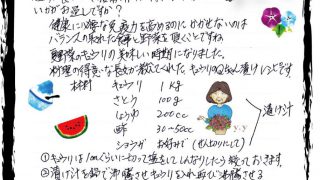 いかがお過しですか？
健康に必要な免疫力を高めるのに、かかせないのは
バランスの取れた食事と野菜を頂くことですね
夏野菜のキュウリの美味しい時期になりました。
料理の得意な長女が教えてくれた、キュウリのQちゃん漬けレシピです
材料 キュウリ 1Kg
さとう 100g
しょうゆ 200cc
酢 30~50cc
ショウガ お好みで(せん切りにして)
漬け汁
①キュウリは1cmくらいに切って塩をしてしんなりしたら絞っておきます。
②漬け汁を鍋で沸騰させキュウリを入れ再び沸騰させる